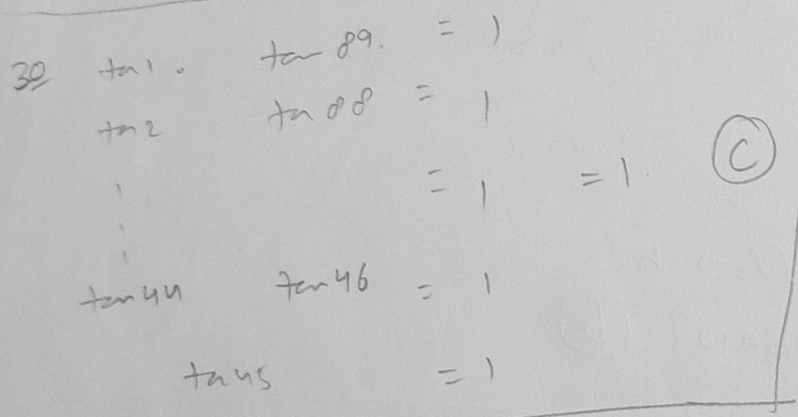 30 ta1 . tan 89. = 1
tn2 ta 88 = 1
= 1 = 1. C
tan44 tan46 = 1
ta45 = 1